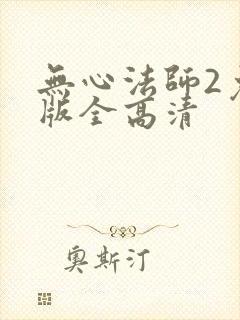 無心法師2
版全高清
奧斯汀